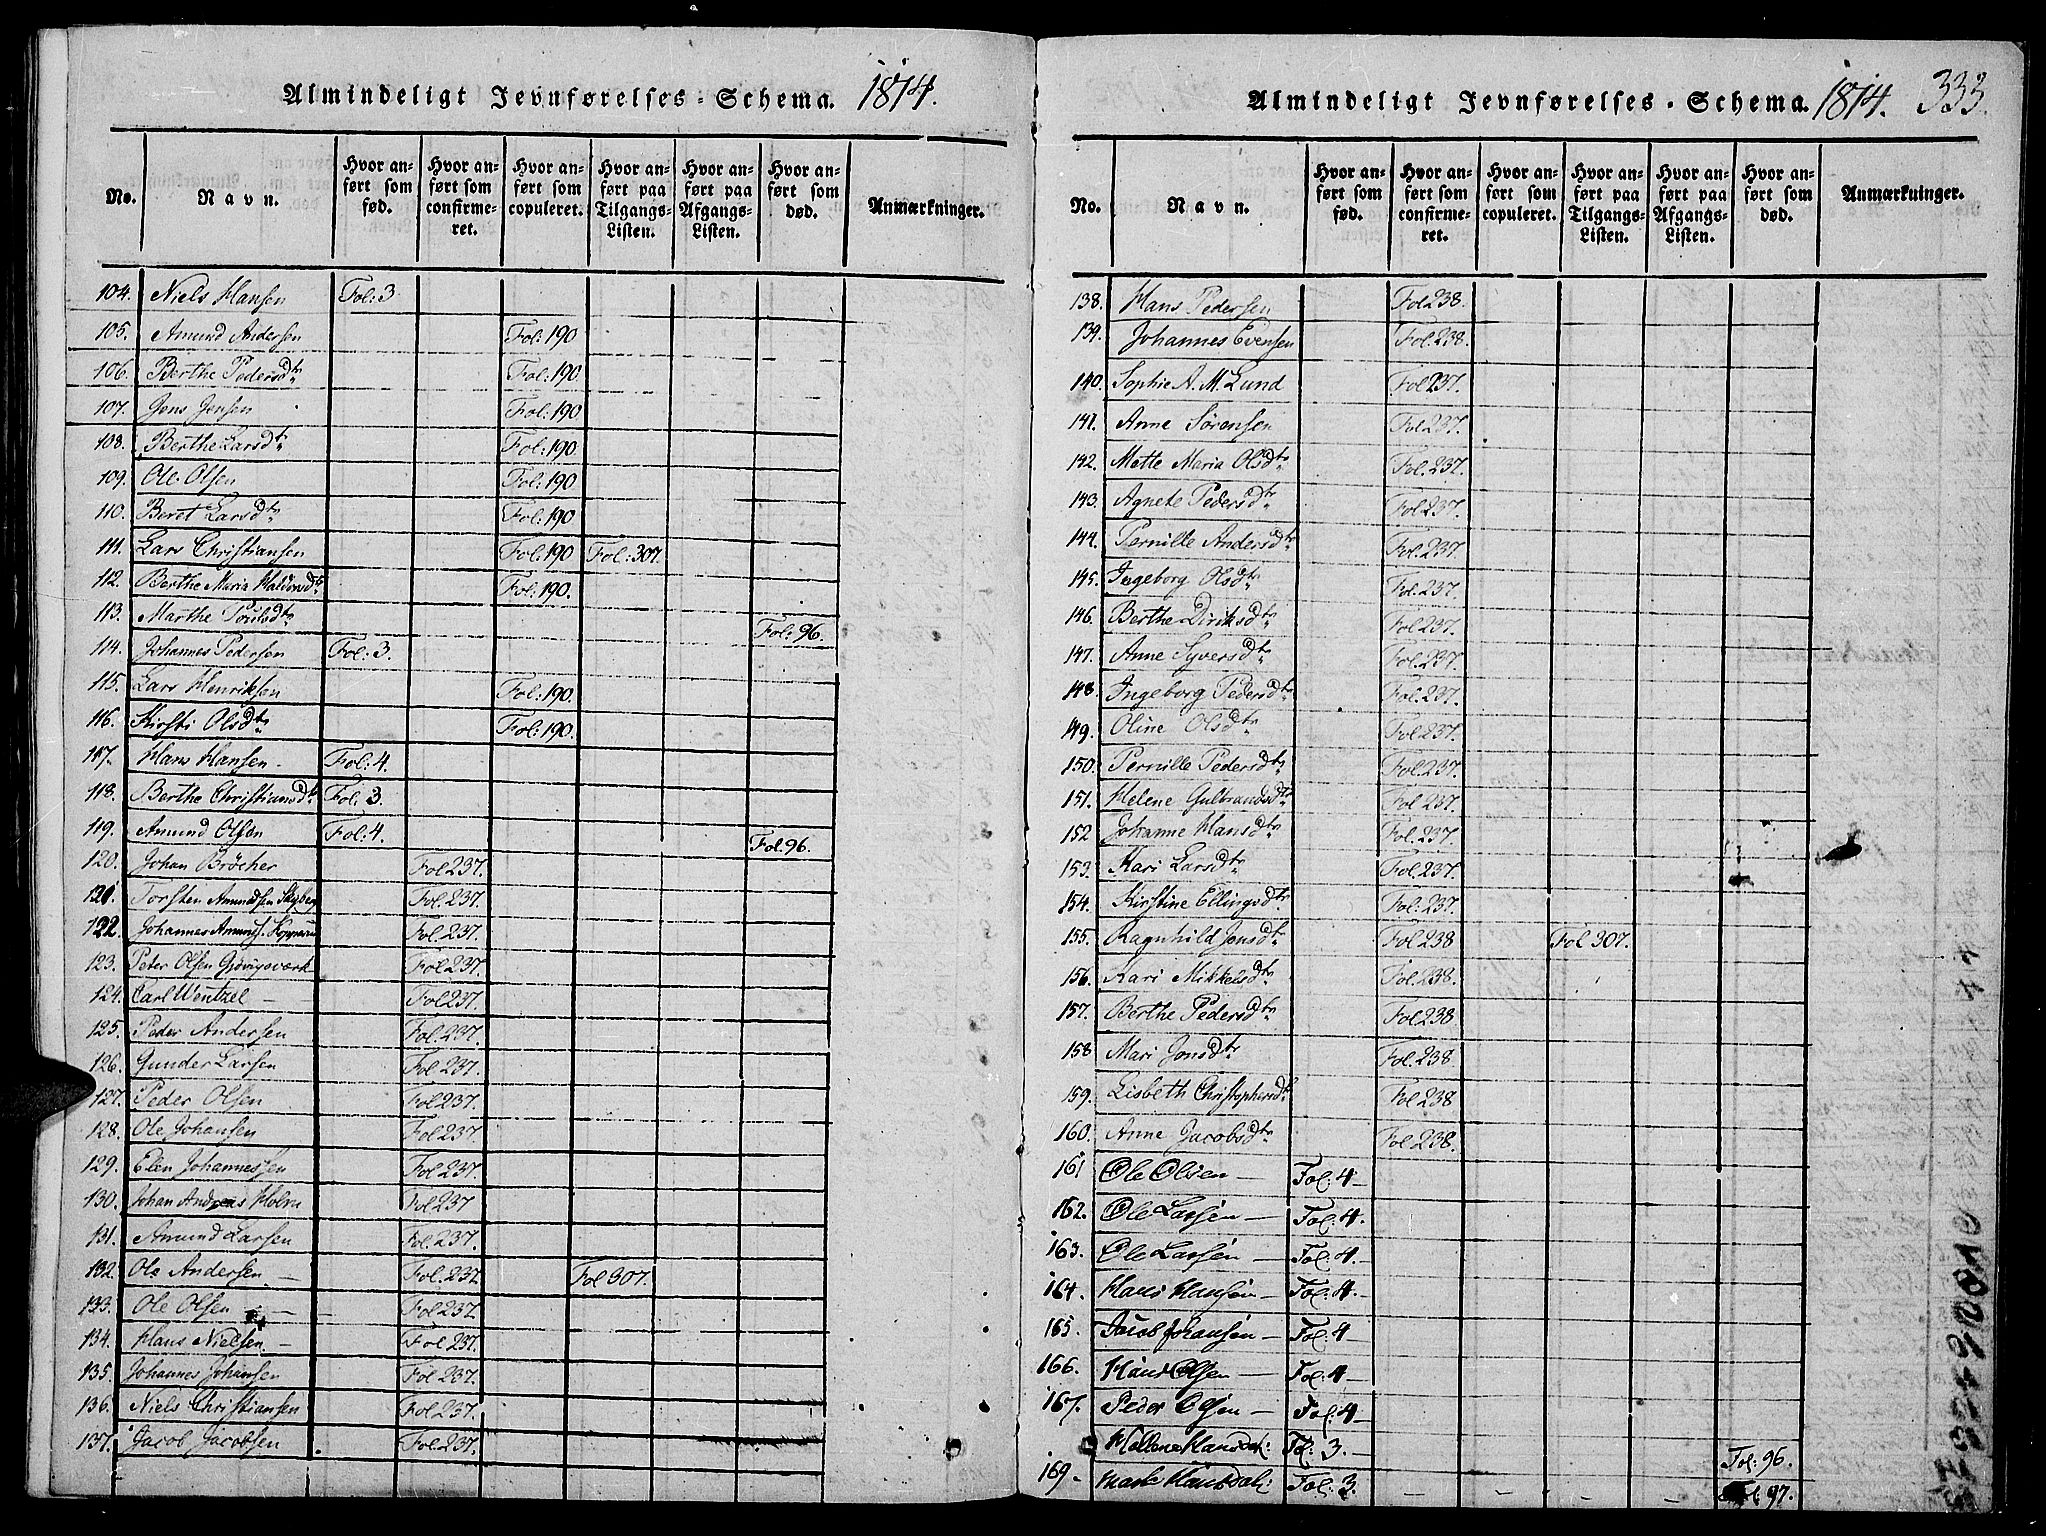 Almindeligt Jevnførelses-Schema. 1814.
No. Navn. Hvor anført som fød. Hvor anført som confirmeret. Hvor anført som copuleret. Hvor anført paa Tilgangs-Listen. Hvor anført paa Afgangs-Listen. Hvor anført som død. Anmærkninger.
104. Niels Hansen Fol: 3
105. Amund Andersen Fol: 190
106. Berthe Pedersdtr Fol: 190
107. Jens Jensen Fol: 190
108. Berthe Larsdtr Fol: 190
109. Ole Olsen Fol: 190
110. Beret Larsdtr Fol: 190
111. Lars Christiansen Fol: 190 Fol: 307.
112. Berthe Maria Haldorsdtr Fol: 190.
113. Marthe Poulsdtr Fol: 96.
114. Johannes Pedersen Fol: 3.
115. Lars Henriksen Fol: 190.
116. Kirsti Olsdtr Fol: 190.
117. Hans Hansen Fol: 4.
118. Berthe Christiansdtr Fol: 3.
119. Amund Olsen Fol: 4. Fol. 96.
120. Johan Bröcher Fol 237.
121. Torsten Amundsen Fol. 237.
122. Johannes Amunds. Fol. 237.
123. Peter Olsen Gjövigsværk Fol 237.
124. Carl Wentzel Fol 237.
125. Peder Andersen Fol. 237.
126. Gunder Larsen Fol 237.
127. Peder Olsen Fol 237.
128. Ole Johansen Fol 237.
129. Elen Johannessen Fol 237.
130. Johan Andreas Fol 237
131. Amund Larsen Fol. 237.
132. Ole Andersen Fol. 237. Fol 307.
133. Ole Olsen Fol 237.
134. Hans Nielsen Fol 237.
135. Johannes Johansen Fol 237.
136. Niels Christiansen Fol 237.
137. Jacob Jacobsen Fol. 237.
Almindeligt Jevnførelses-Schema. 1814. 333.
No. Navn. Hvor anført som fød. Hvor anført som confirmeret. Hvor anført som copuleret. Hvor anført paa Tilgangs-Listen. Hvor anført paa Afgangs-Listen. Hvor anført som død. Anmærkninger.
138. Hans Pedersen Fol 238.
139. Johannes Evensen Fol. 238.
140. Sophie A. M. Lund Fol 237.
141. Anne Sörensen Fol 237.
142. Mette Maria Olsdtr Fol. 237.
143. Agnete Pedersdtr Fol. 237.
144. Pernille Andersdtr Fol. 237.
145. Ingeborg Olsdtr Fol. 237.
146. Berthe Diriksdtr Fol 237.
147. Anne Syversdtr Fol. 237.
148. Ingeborg Pedersdtr Fol. 237.
149. Oline Olsdtr Fol 237.
150. Pernille Pedersdtr Fol. 237.
151. Helene Gulbrandsdtr Fol 237.
152 Johanne Hansdtr Fol. 237.
153. Kari Larsdtr Fol 237.
154. Kirstine Ellingsdtr Fol: 237.
155. Ragnhild Jonsdtr Fol 238 Fol 307.
156. Kari Mikkelsdtr Fol. 238.
157. Berthe Pedersdtr Fol 238
158 Mari Jonsdtr Fol. 238
159. Lisbeth Christophersdtr Fol 238
160. Anne Jacobsdtr Fol 238.
161 Ole Olsen Fol: 4
162. Ole Larsen Fol: 4.
163. Ole Larsen Fol: 4.
164. Hans Hansen Fol: 4.
165. Jacob Johansen Fol: 4
166. Hans Olsen Fol: 4
167. Peder Olsen Fol: 4
Hellene Hansdat: Fol: 3. Fol: 96.
169 Hansdat: Fol: 3. Fol: 97.